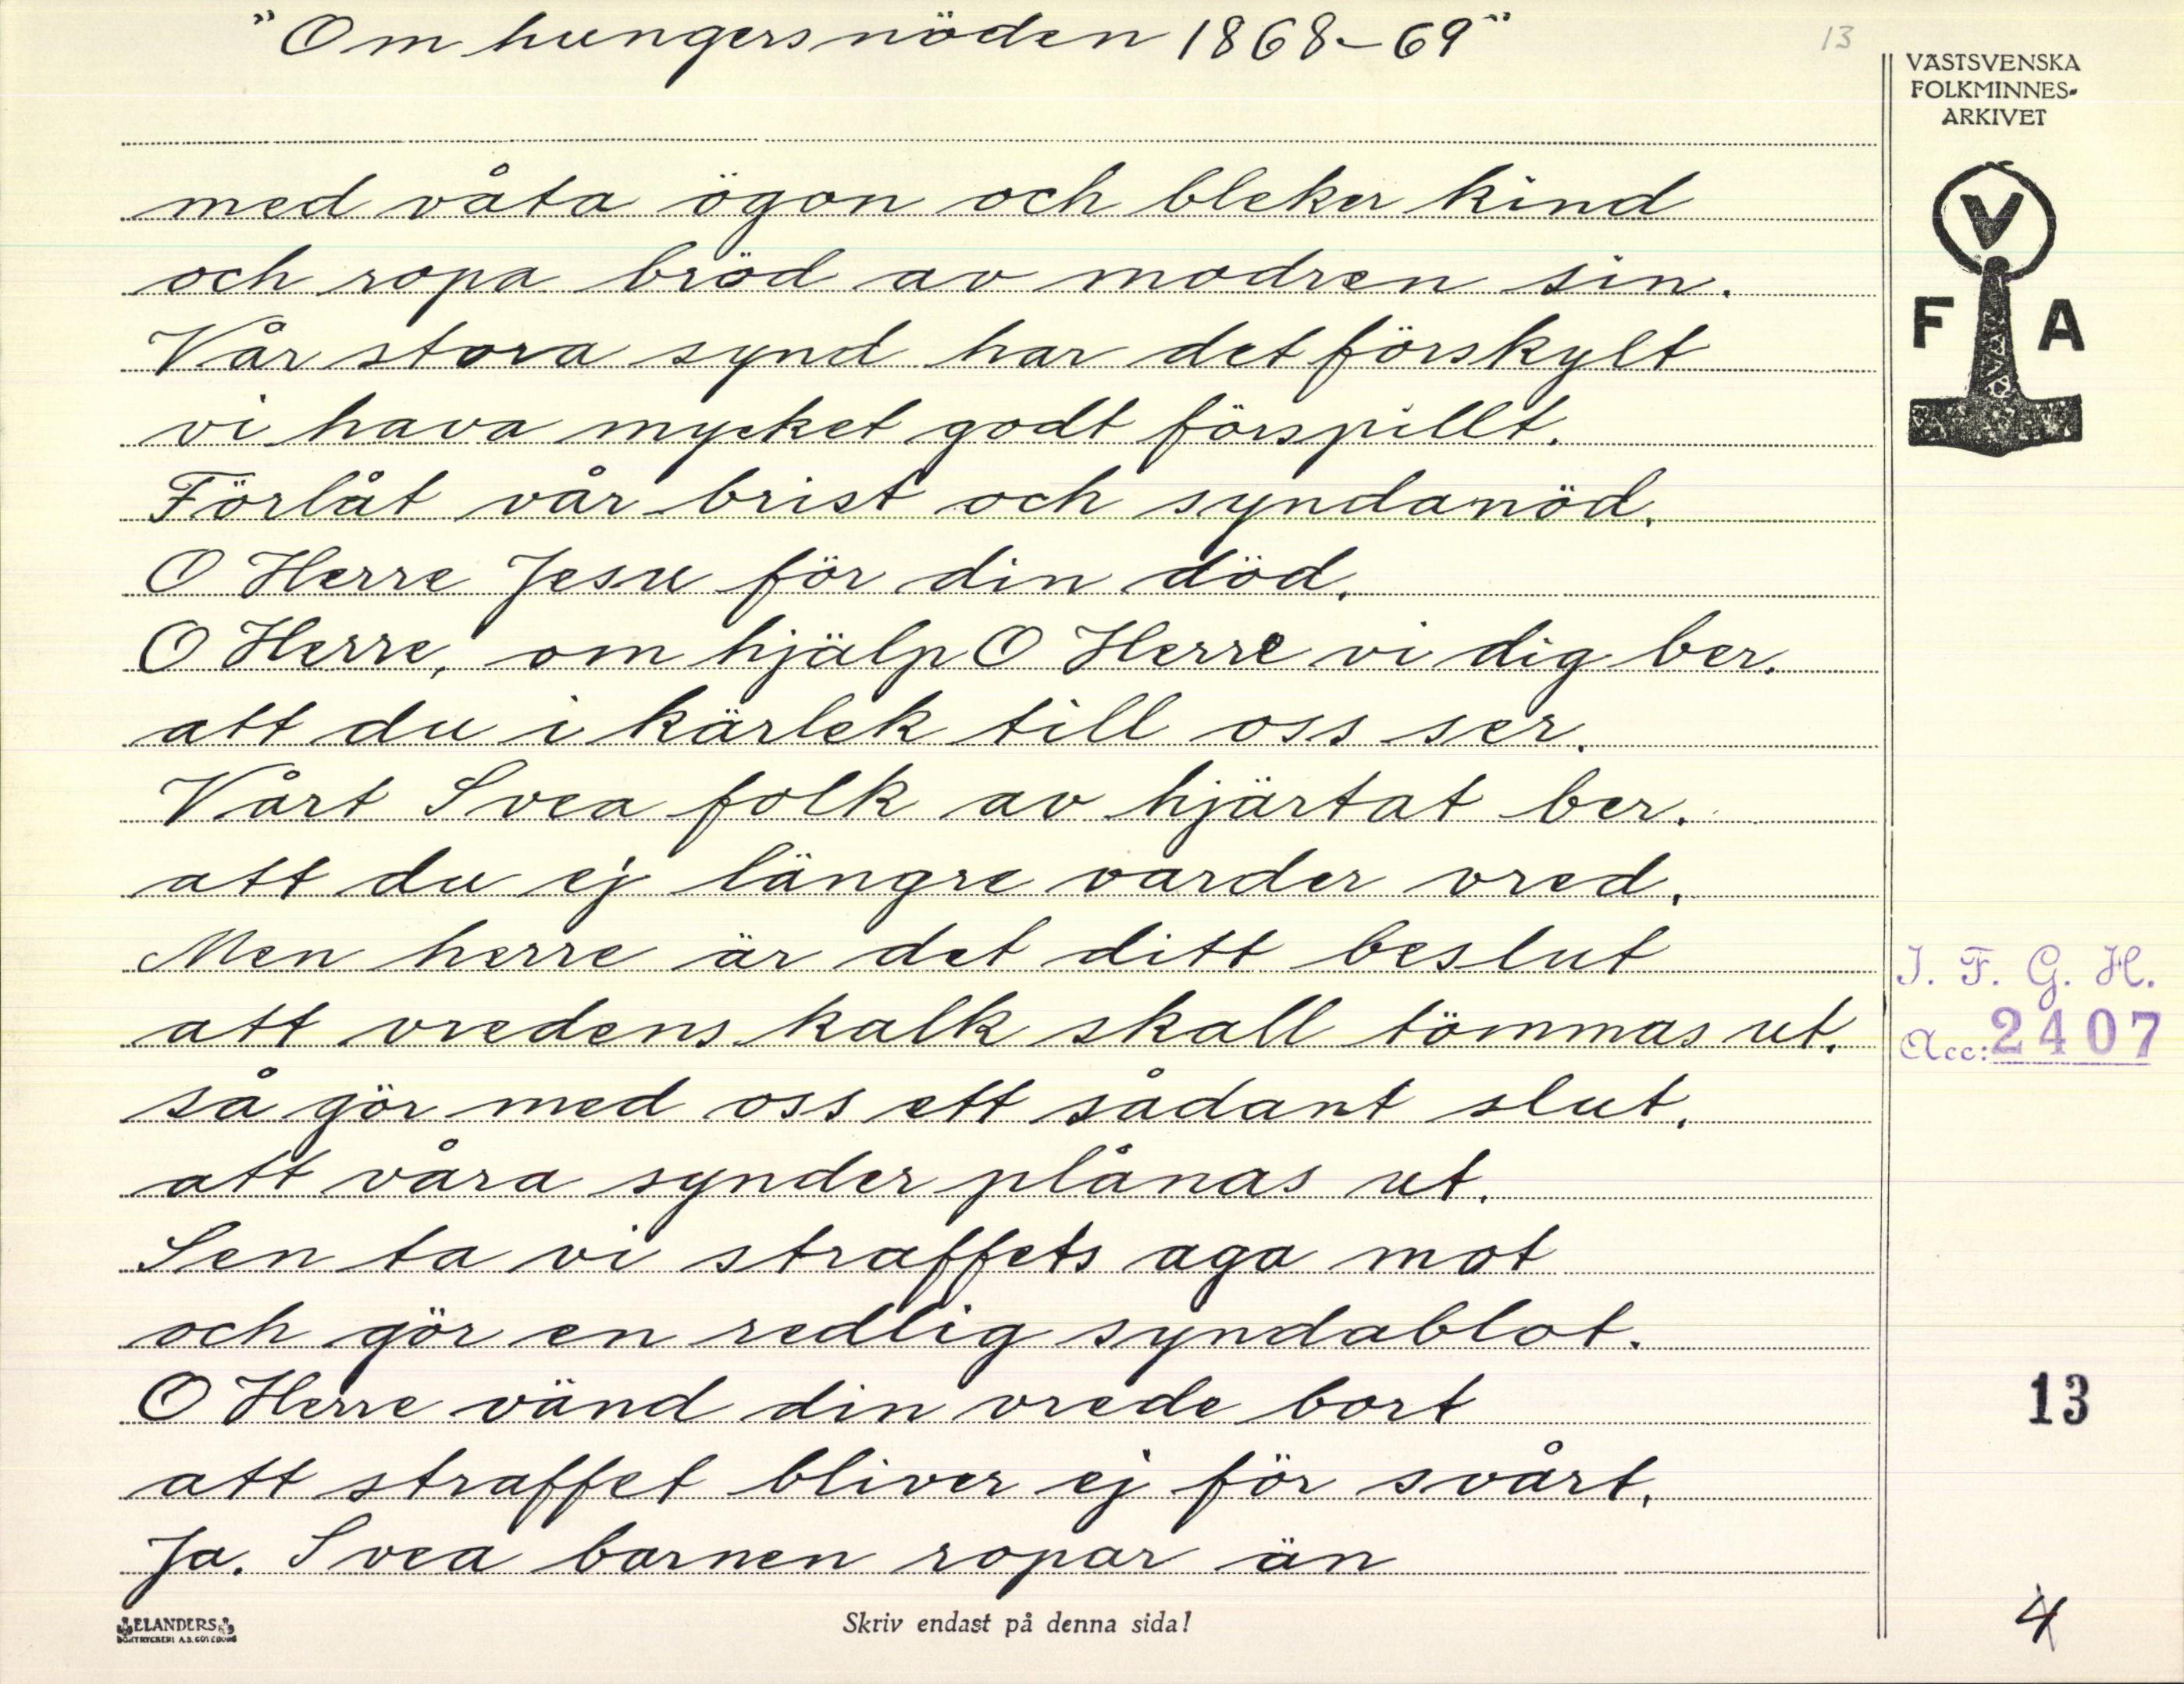 "Om hungersnöden 1868-69"
13
VÄSTSVENSKA
FOLKMINNES-
ARKIVET
V
F A
med våta ögon och bleker kind
och ropa bröd av modren sin.
Vår stora synd har det förskylt
vi hava mycket godt förspillt.
Förlåt vår brist och syndanöd,
O Herre Jesu för din död,
O Herre, om hjälp O Herre vi dig ber.
att du i kärlek till oss ser.
Vårt Svea folk av hjärtat ber.
att du ej längre varder vred,
Men herre är det ditt beslut
att vredens kalk skall tömmas ut.
så gör med oss ett sådant slut,
att våra synder plånas ut.
Sen ta vi straffets aga mot
och gör en redlig syndablot.
O Herre vänd din vrede bort
att straffet bliver ej för svårt,
Ja. Svea barnen ropar än
I. F. G. H.
Acc: 2407
13
4
ELANDERS
BOKTRYCKERI A.B. GÖTEBORG
Skriv endast på denna sida!